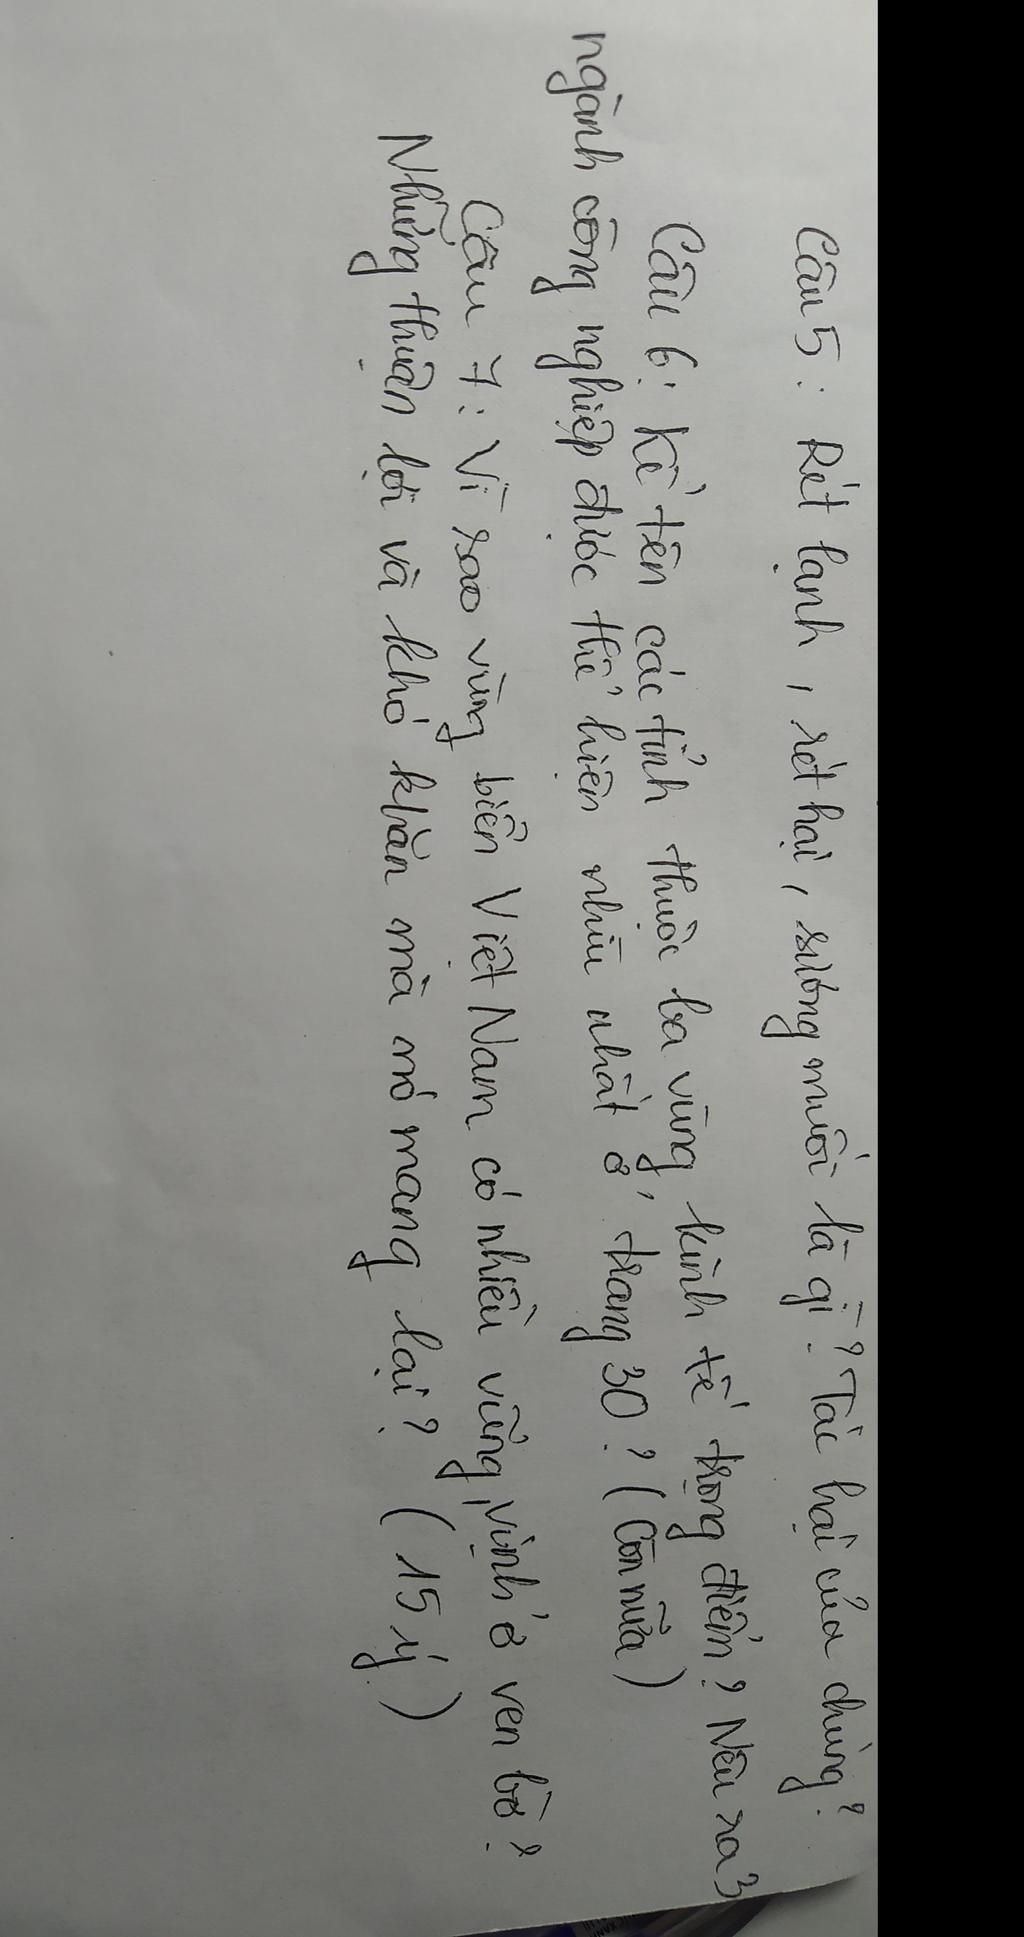 Câu 5: Rét lạnh, rét hại, sương muối là gì? Tác hại của chúng?
Câu 6: Kể tên các tỉnh thuộc ba vùng kinh tế trọng điểm? Nêu ra 3
ngành công nghiệp được thể hiện nhiều nhất ở trang 30? (Còn nữa)
Câu 7: Vì sao vùng biển Việt Nam có nhiều vũng, vịnh ở ven bờ?
Những thuận lợi và khó khăn mà nó mang lại? (15 ý)